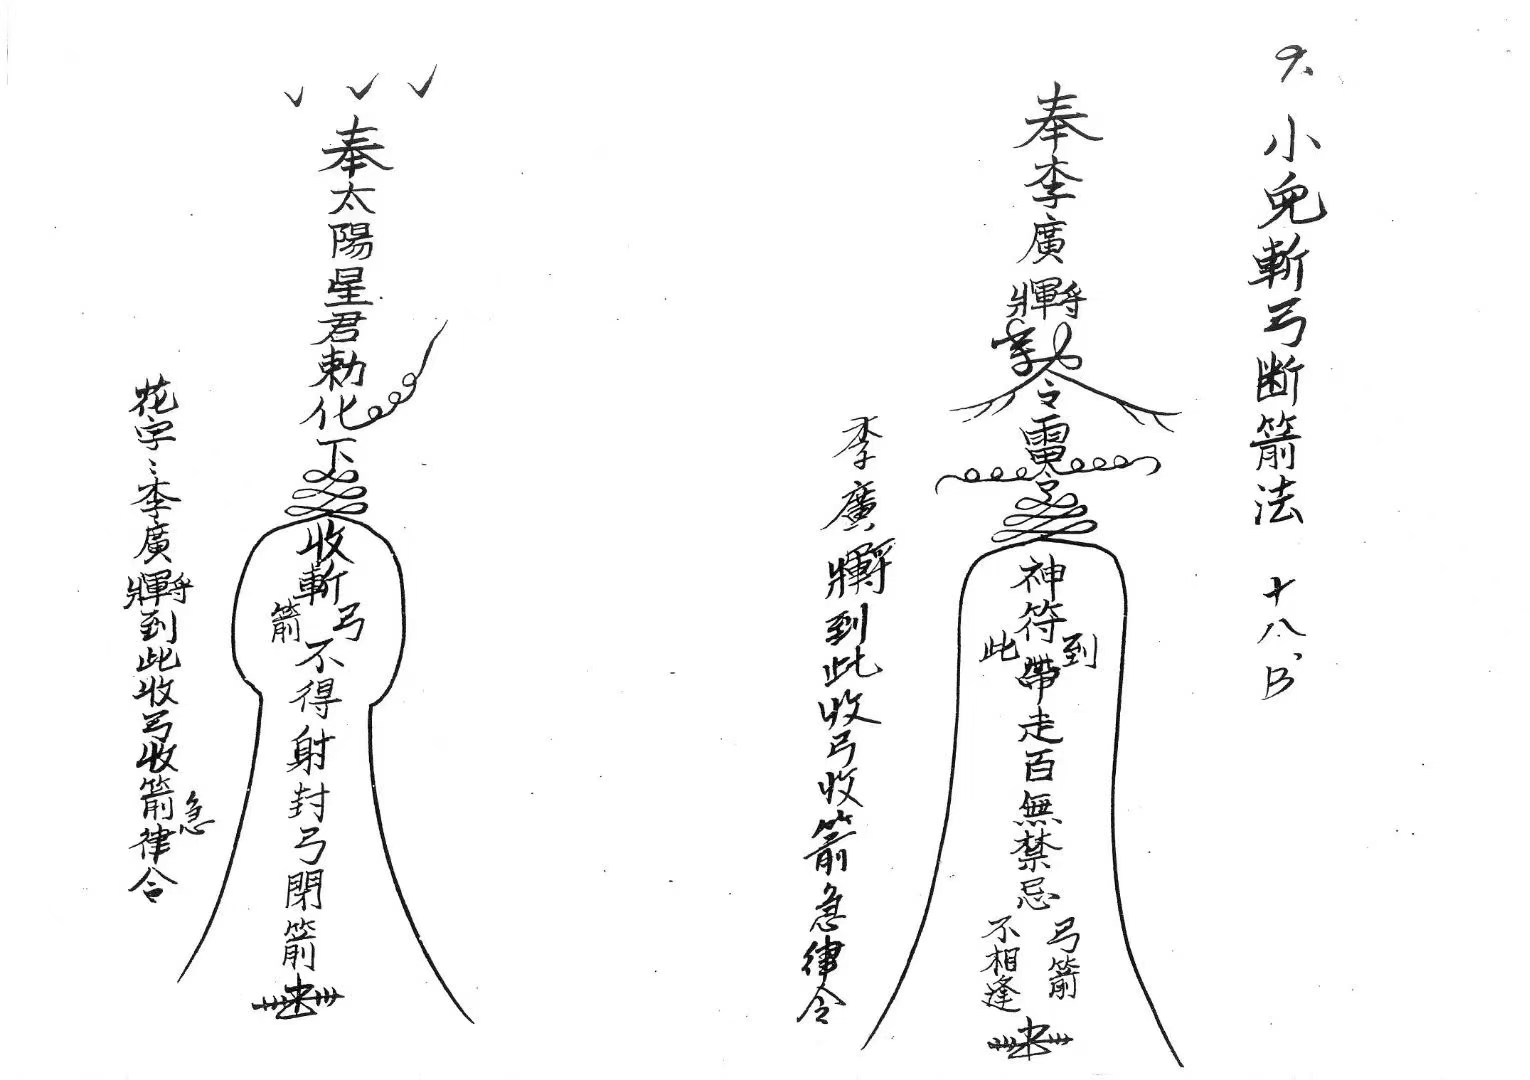 9、小免斬弓断箭法 十八、B
奉李廣將軍
令雷
神符到此帶走百無禁忌
弓箭
不相逢
李廣將軍到此收弓收箭急律令
奉太陽星君勅化下
收斬弓箭不得射封弓閉箭
花字:李廣將軍到此收弓收箭急律令